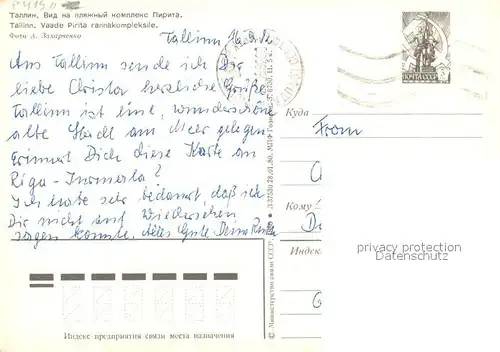 Таллин. Вид на пляжный комплекс Пирита.
Tallinn. Vaade Pirita rannakompleksile.
Фото А. Захарченко
Tallinn
Aus Tallinn sende ich Dir
liebe Christa herzliche Grüße
Tallinn ist eine wunderschöne
alte Stadt am Meer gelegen
Erinnert Dich diese Karte an
Riga - Jurmala?
Ich habe sehr bedauert, daß ich
Dir nicht auf Wiedersehen
sagen konnte. Alles Gute Deine
ПОЧТА СССР
Куда
From
Кому
Индекс
privacy protection
copyright by
© Министерство связи СССР
Индекс предприятия связи места назначения